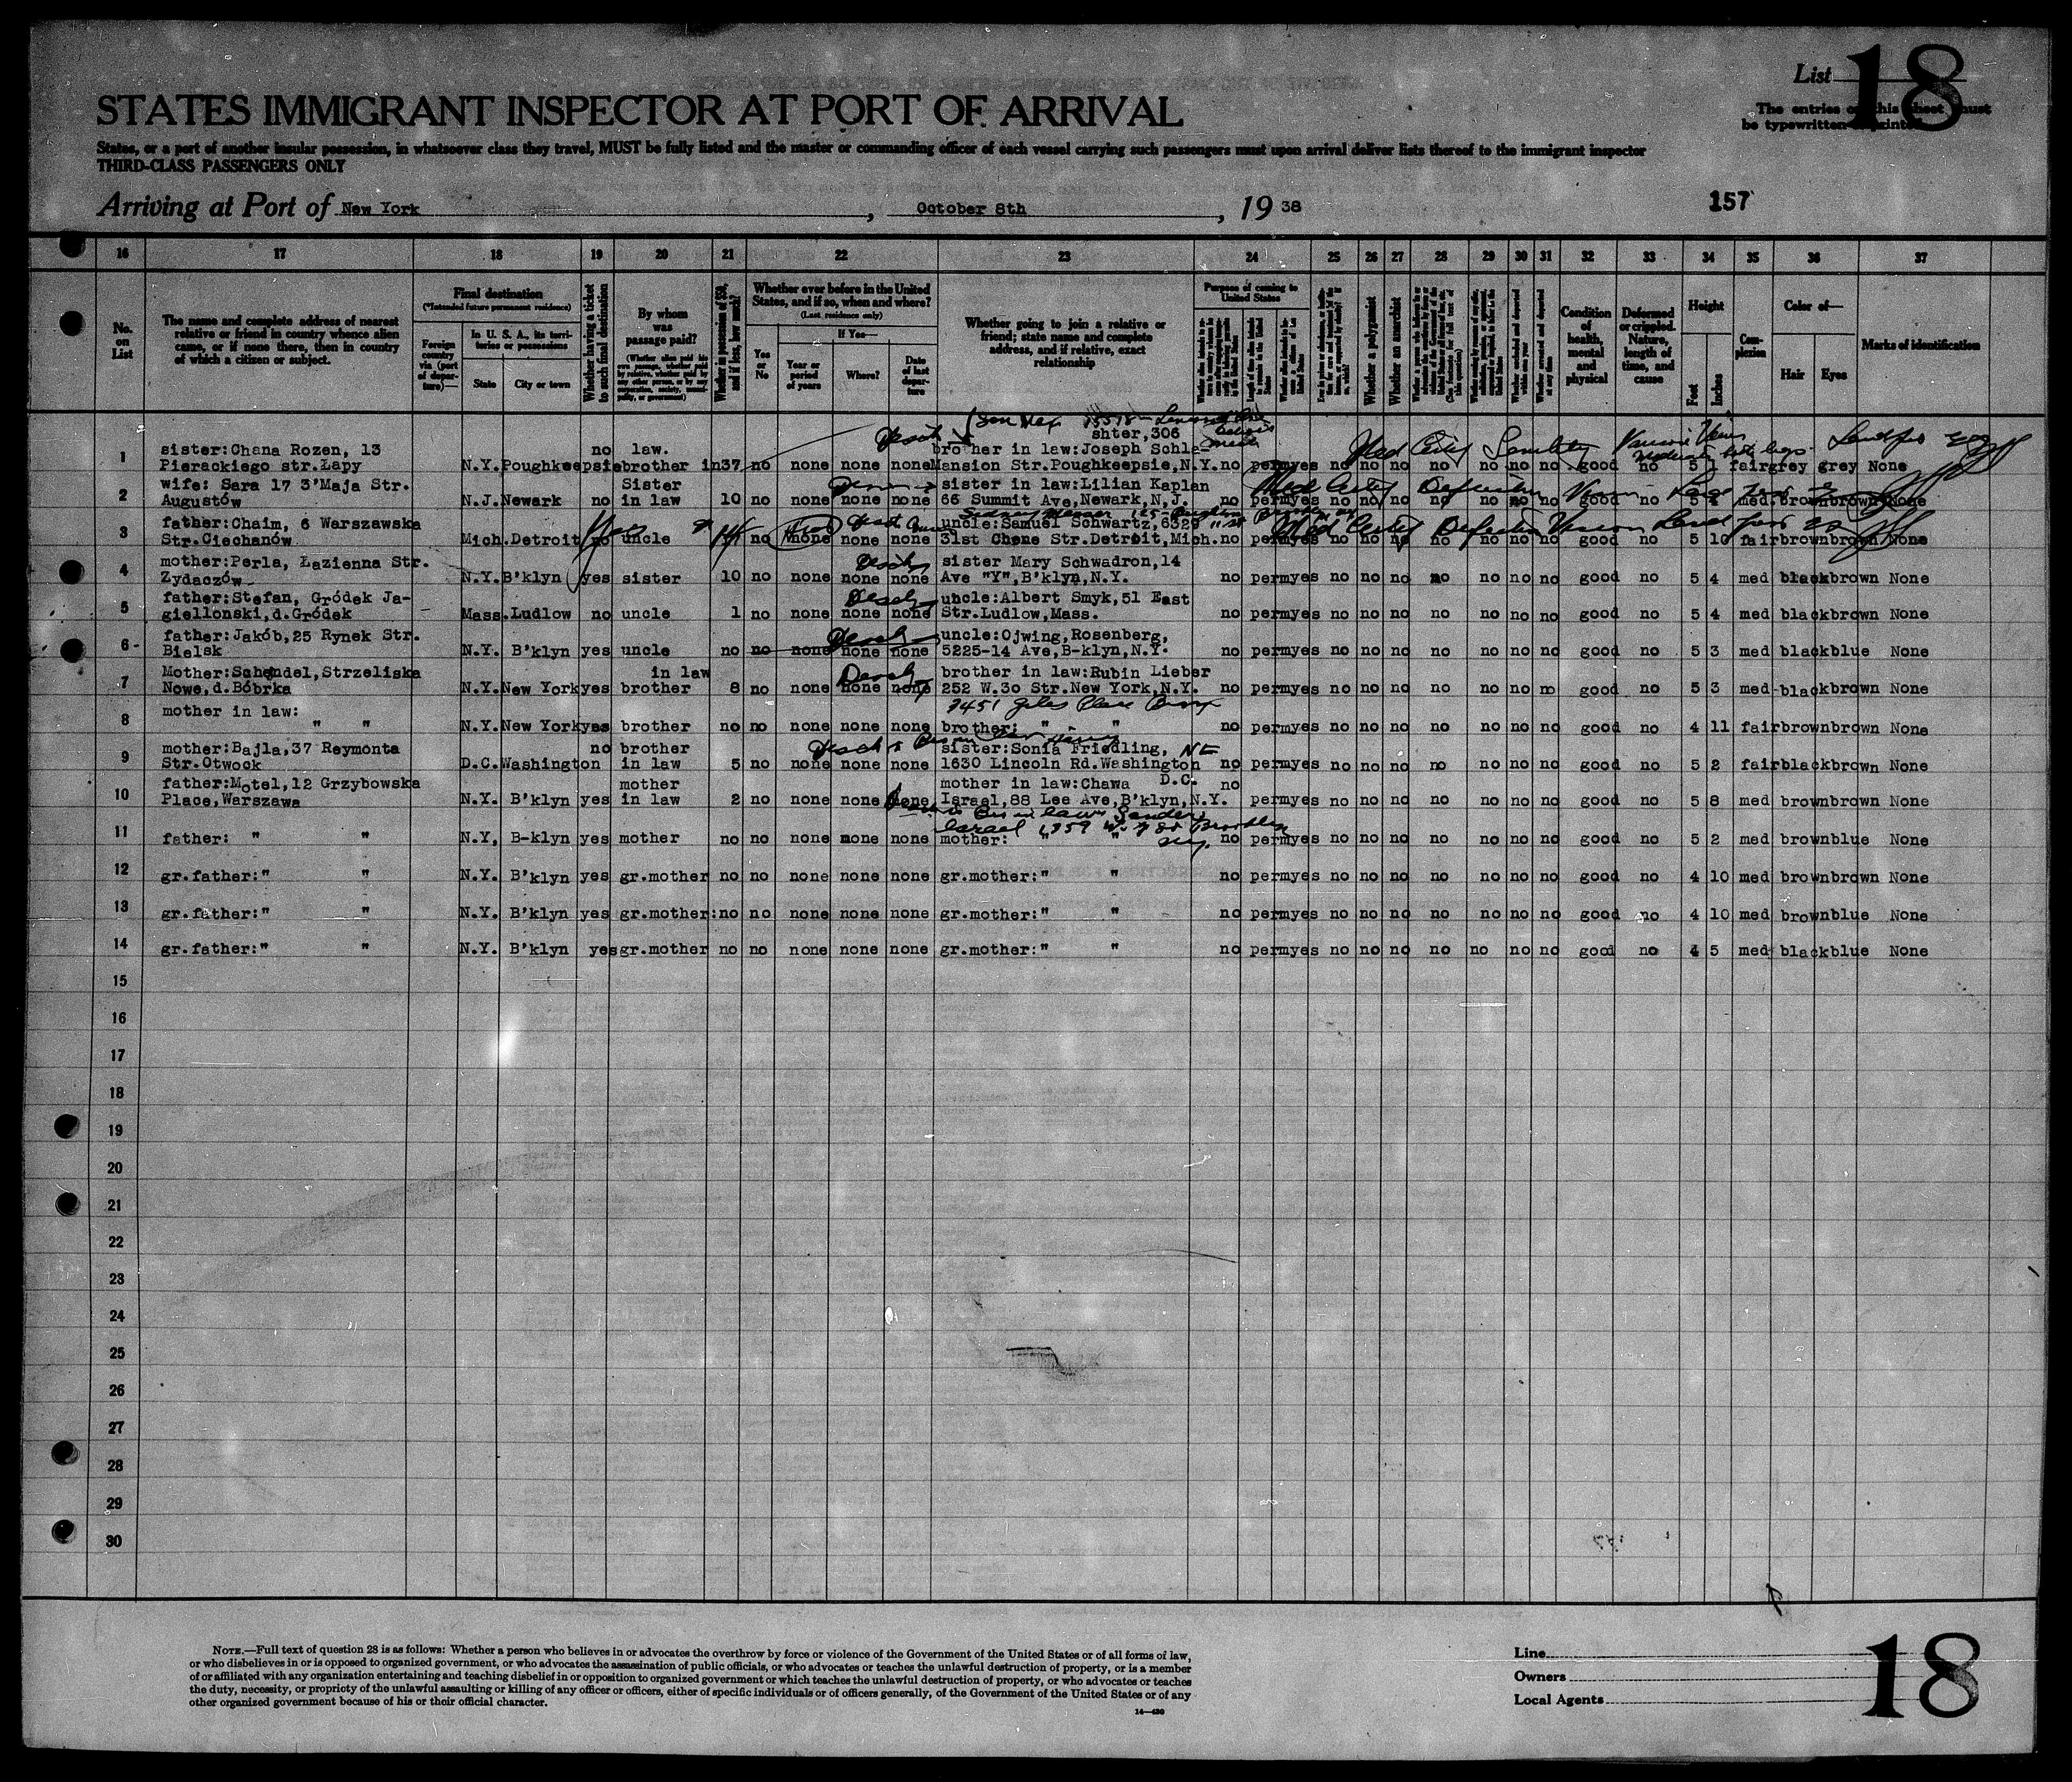 List 18
STATES IMMIGRANT INSPECTOR AT PORT OF ARRIVAL
The entries on this sheet must
be typewritten or printed
States, or a port of another insular possession, in whatsoever class they travel, MUST be fully listed and the master or commanding officer of each vessel carrying such passengers must upon arrival deliver lists thereof to the immigrant inspector
THIRD-CLASS PASSENGERS ONLY
Arriving at Port of New York, October 8th, 19 38
157
16 17 18 19 20 21 22 23 24 25 26 27 28 29 30 31 32 33 34 35 36 37
No. on List
The name and complete address of nearest
relative or friend in country whence alien
came, or if none there, then in country
of which a citizen or subject.
Final destination
(*Intended future permanent residence)
Foreign country via (port of departure)—
In U. S. A., its territories or possessions
State
City or town
Whether having a ticket to such final destination
By whom was passage paid?
(Whether alien paid his own passage, whether paid by relative, whether paid by any other person, or by any corporation, society, municipality, or government)
Whether in possession of $50, and if less, how much?
Whether ever before in the United
States, and if so, when and where?
(Last residence only)
Yes or No
If Yes—
Year or period of years
Where?
Date of last departure
Whether going to join a relative or
friend; state name and complete
address, and if relative, exact
relationship
Purpose of coming to United States
Whether a polygamist
Whether an anarchist
Condition of health, mental and physical
Deformed or crippled. Nature, length of time, and cause
Height
Feet
Inches
Complexion
Color of—
Hair
Eyes
Marks of identification
1 sister:Chana Rozen, 13 no law. brother in law:Joseph Schla-
shter,306
Pierackiego str.Łapy N.Y. Poughkeepsie brother in 37 no none none none Mansion Str.Poughkeepsie,N.Y. no perm yes no no no no no no no good no 5 1 fair grey grey None
2 wife: Sara 17 3'Maja Str. Sister sister in law:Lilian Kaplan
Augustów N.J. Newark no in law 10 no none none none 66 Summit Ave,Newark,N,J. no perm yes no no no no no no no good no 5 4 med. brown brown None
3 father:Chaim, 6 Warszawska uncle:Samuel Schwartz,6329
Str.Ciechanów Mich. Detroit no uncle no none none none 31st Chene Str.Detroit,Mich. no perm yes no no no no no no no good no 5 10 fair brown brown None
4 mother:Perla, Łazienna Str. sister Mary Schwadron,14
Zydaczów N.Y. B'klyn yes sister 10 no none none none Ave "Y",B'klyn,N.Y. no perm yes no no no no no no no good no 5 4 med black brown None
5 father:Stefan, Gródek Ja- uncle:Albert Smyk,51 East
giellonski,d.Gródek Mass. Ludlow no uncle 1 no none none none Str.Ludlow,Mass. no perm yes no no no no no no no good no 5 4 med black brown None
6 father:Jakób,25 Rynek Str. uncle:Ojwing,Rosenberg,
Bielsk N.Y. B'klyn yes uncle no no none none none 5225-14 Ave,B-klyn,N.Y. no perm yes no no no no no no no good no 5 3 med black blue None
7 Mother:Schendel,Strzeliska in law brother in law:Rubin Lieber
Nowe,d.Bóbrka N.Y. New York yes brother 8 no none none none 252 W.30 Str.New York,N.Y. no perm yes no no no no no no no good no 5 3 med black brown None
8 mother in law:
" " N.Y. New York yes brother no no none none none brother: " " no perm yes no no no no no no no good no 4 11 fair brown brown None
9 mother:Bajla,37 Reymonta no brother sister:Sonia Friedling, NE
Str.Otwock D.C. Washington in law 5 no none none none 1630 Lincoln Rd.Washington no perm yes no no no no no no no good no 5 2 fair black brown None
D.C.
10 father:Motel,12 Grzybowska mother mother in law:Chawa no
Place,Warszawa N.Y. B'klyn yes in law 2 no none none none Israel,88 Lee Ave,B'klyn,N.Y. perm yes no no no no no no no good no 5 8 med brown brown None
11 father: " " N.Y, B-klyn yes mother no no none none none mother: " no perm yes no no no no no no no good no 5 2 med brown blue None
12 gr.father:" " N.Y. B'klyn yes gr.mother no no none none none gr.mother:" " no perm yes no no no no no no no good no 4 10 med brown brown None
13 gr.father:" " N.Y. B'klyn yes gr.mother: no no none none none gr.mother:" " no perm yes no no no no no no no good no 4 10 med brown blue None
14 gr.father:" " N.Y. B'klyn yes gr.mother no no none none none gr.mother:" " no perm yes no no no no no no no good no 4 5 med black blue None
15
16
17
18
19
20
21
22
23
24
25
26
27
28
29
30
NOTE.—Full text of question 28 is as follows: Whether a person who believes in or advocates the overthrow by force or violence of the Government of the United States or of all forms of law,
or who disbelieves in or is opposed to organized government, or who advocates the assassination of public officials, or who advocates or teaches the unlawful destruction of property, or is a member
of or affiliated with any organization entertaining and teaching disbelief in or opposition to organized government or which teaches the unlawful destruction of property, or who advocates or teaches
the duty, necessity, or propriety of the unlawful assaulting or killing of any officer or officers, either of specific individuals or of officers generally, of the Government of the United States or of any
other organized government because of his or their official character.
14—430
Line
Owners
Local Agents
18